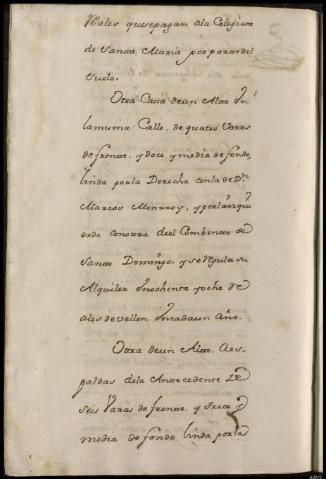 Reales que se pagan ala Colegiata
de Santa Maria por razon del
suelo.
Otra Casa de un Alto In
lamisma Calle, de quatro Varas
de frente, y doce y media de fondo,
linda por la Derecha con la de Dn.
Marcos Monrroy, y por la izqui
erda con otra del Combento de
Santo Domingo, y se regula su
Alquiler In ochenta y ocho Re
ales de vellon In cada un Año.
Otra de un Alto, a es
paldas dela Antecedente de
seis Varas de frente, y trece y
media de fondo linda por la